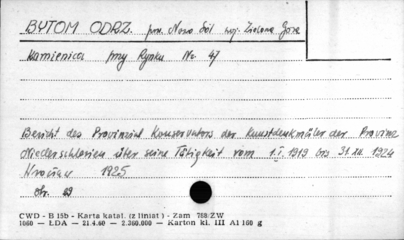 BYTOM ODRZ. pow. Nowa Sól woj. Zielona Góra
Kamienica przy Rynku Nr. 47
Bericht des Provinzial Konservators der Kunstdenkmäler der Provinz
Niederschlesien über seine Tätigkeit vom 1.I.1919 bis 31 XII. 1924
Wrocław 1925
str. 69
CWD - B 15b - Karta katal. (z liniat) - Zam 788/ZW
1060 — ŁDA — 21.4.60 — 2.360.000 — Karton kl. III A1 160 g